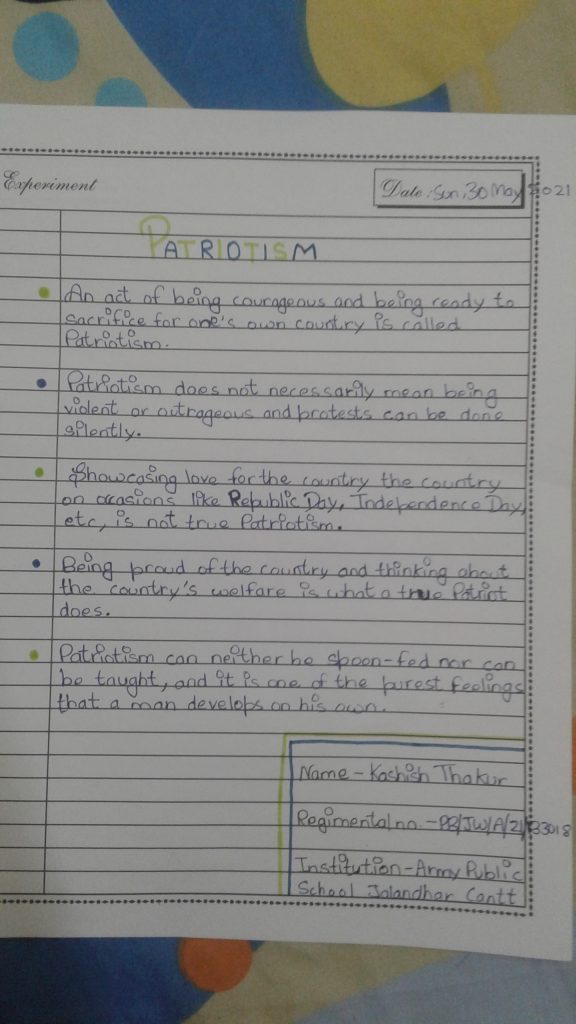 Experiment
Date : Sun, 30 May 2021
PATRIOTISM
An act of being courageous and being ready to
sacrifice for one's own country is called
Patriotism.
Patriotism does not necessarily mean being
violent or outrageous and protests can be done
silently.
Showcasing love for the country the country
on occasions like Republic Day, Independence Day,
etc, is not true Patriotism.
Being proud of the country and thinking about
the country's welfare is what a true Patriot
does.
Patriotism can neither be spoon-fed nor can
be taught, and it is one of the purest feelings
that a man develops on his own.
Name - Kashish Thakur
Regimental no. - PB/JW/A/21/33018
Institution - Army Public
School Jalandhar Cantt